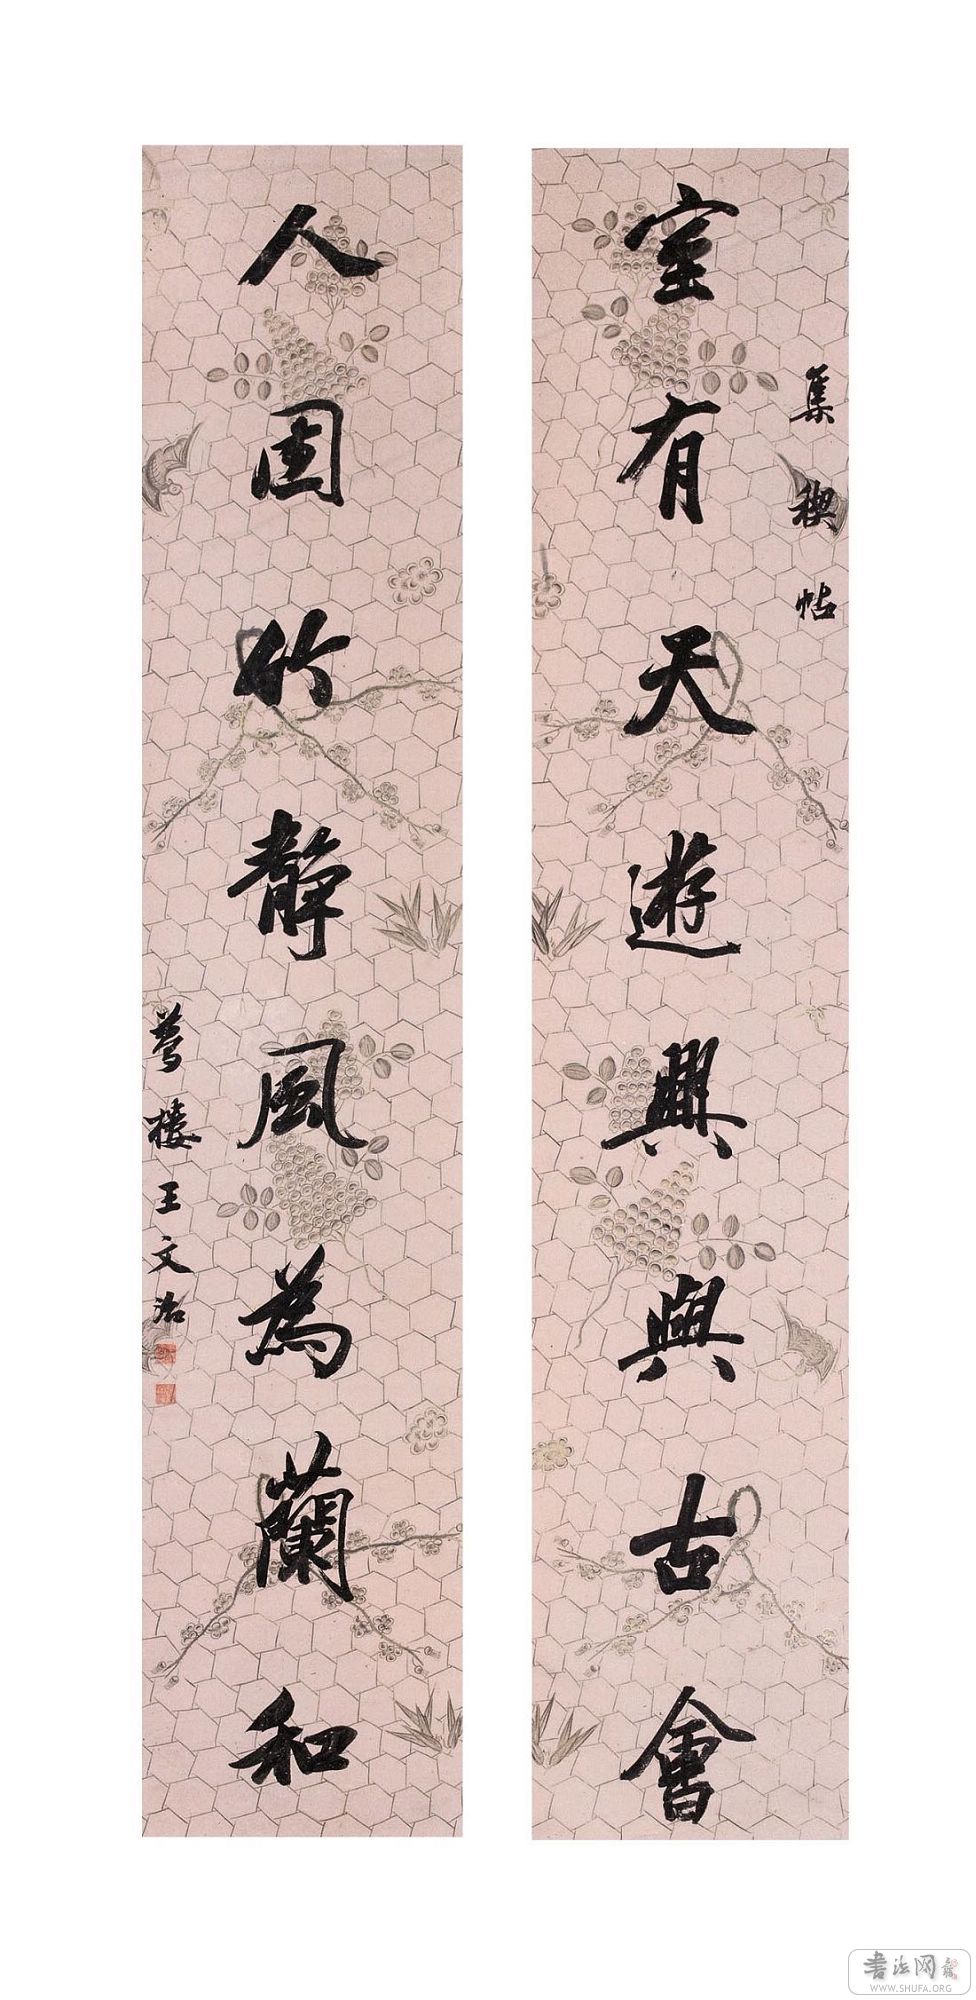 集稧帖
室有天遊興與古會
人因竹靜風為蘭和
夢樓王文治
書法网
WWW.SHUFA.ORG